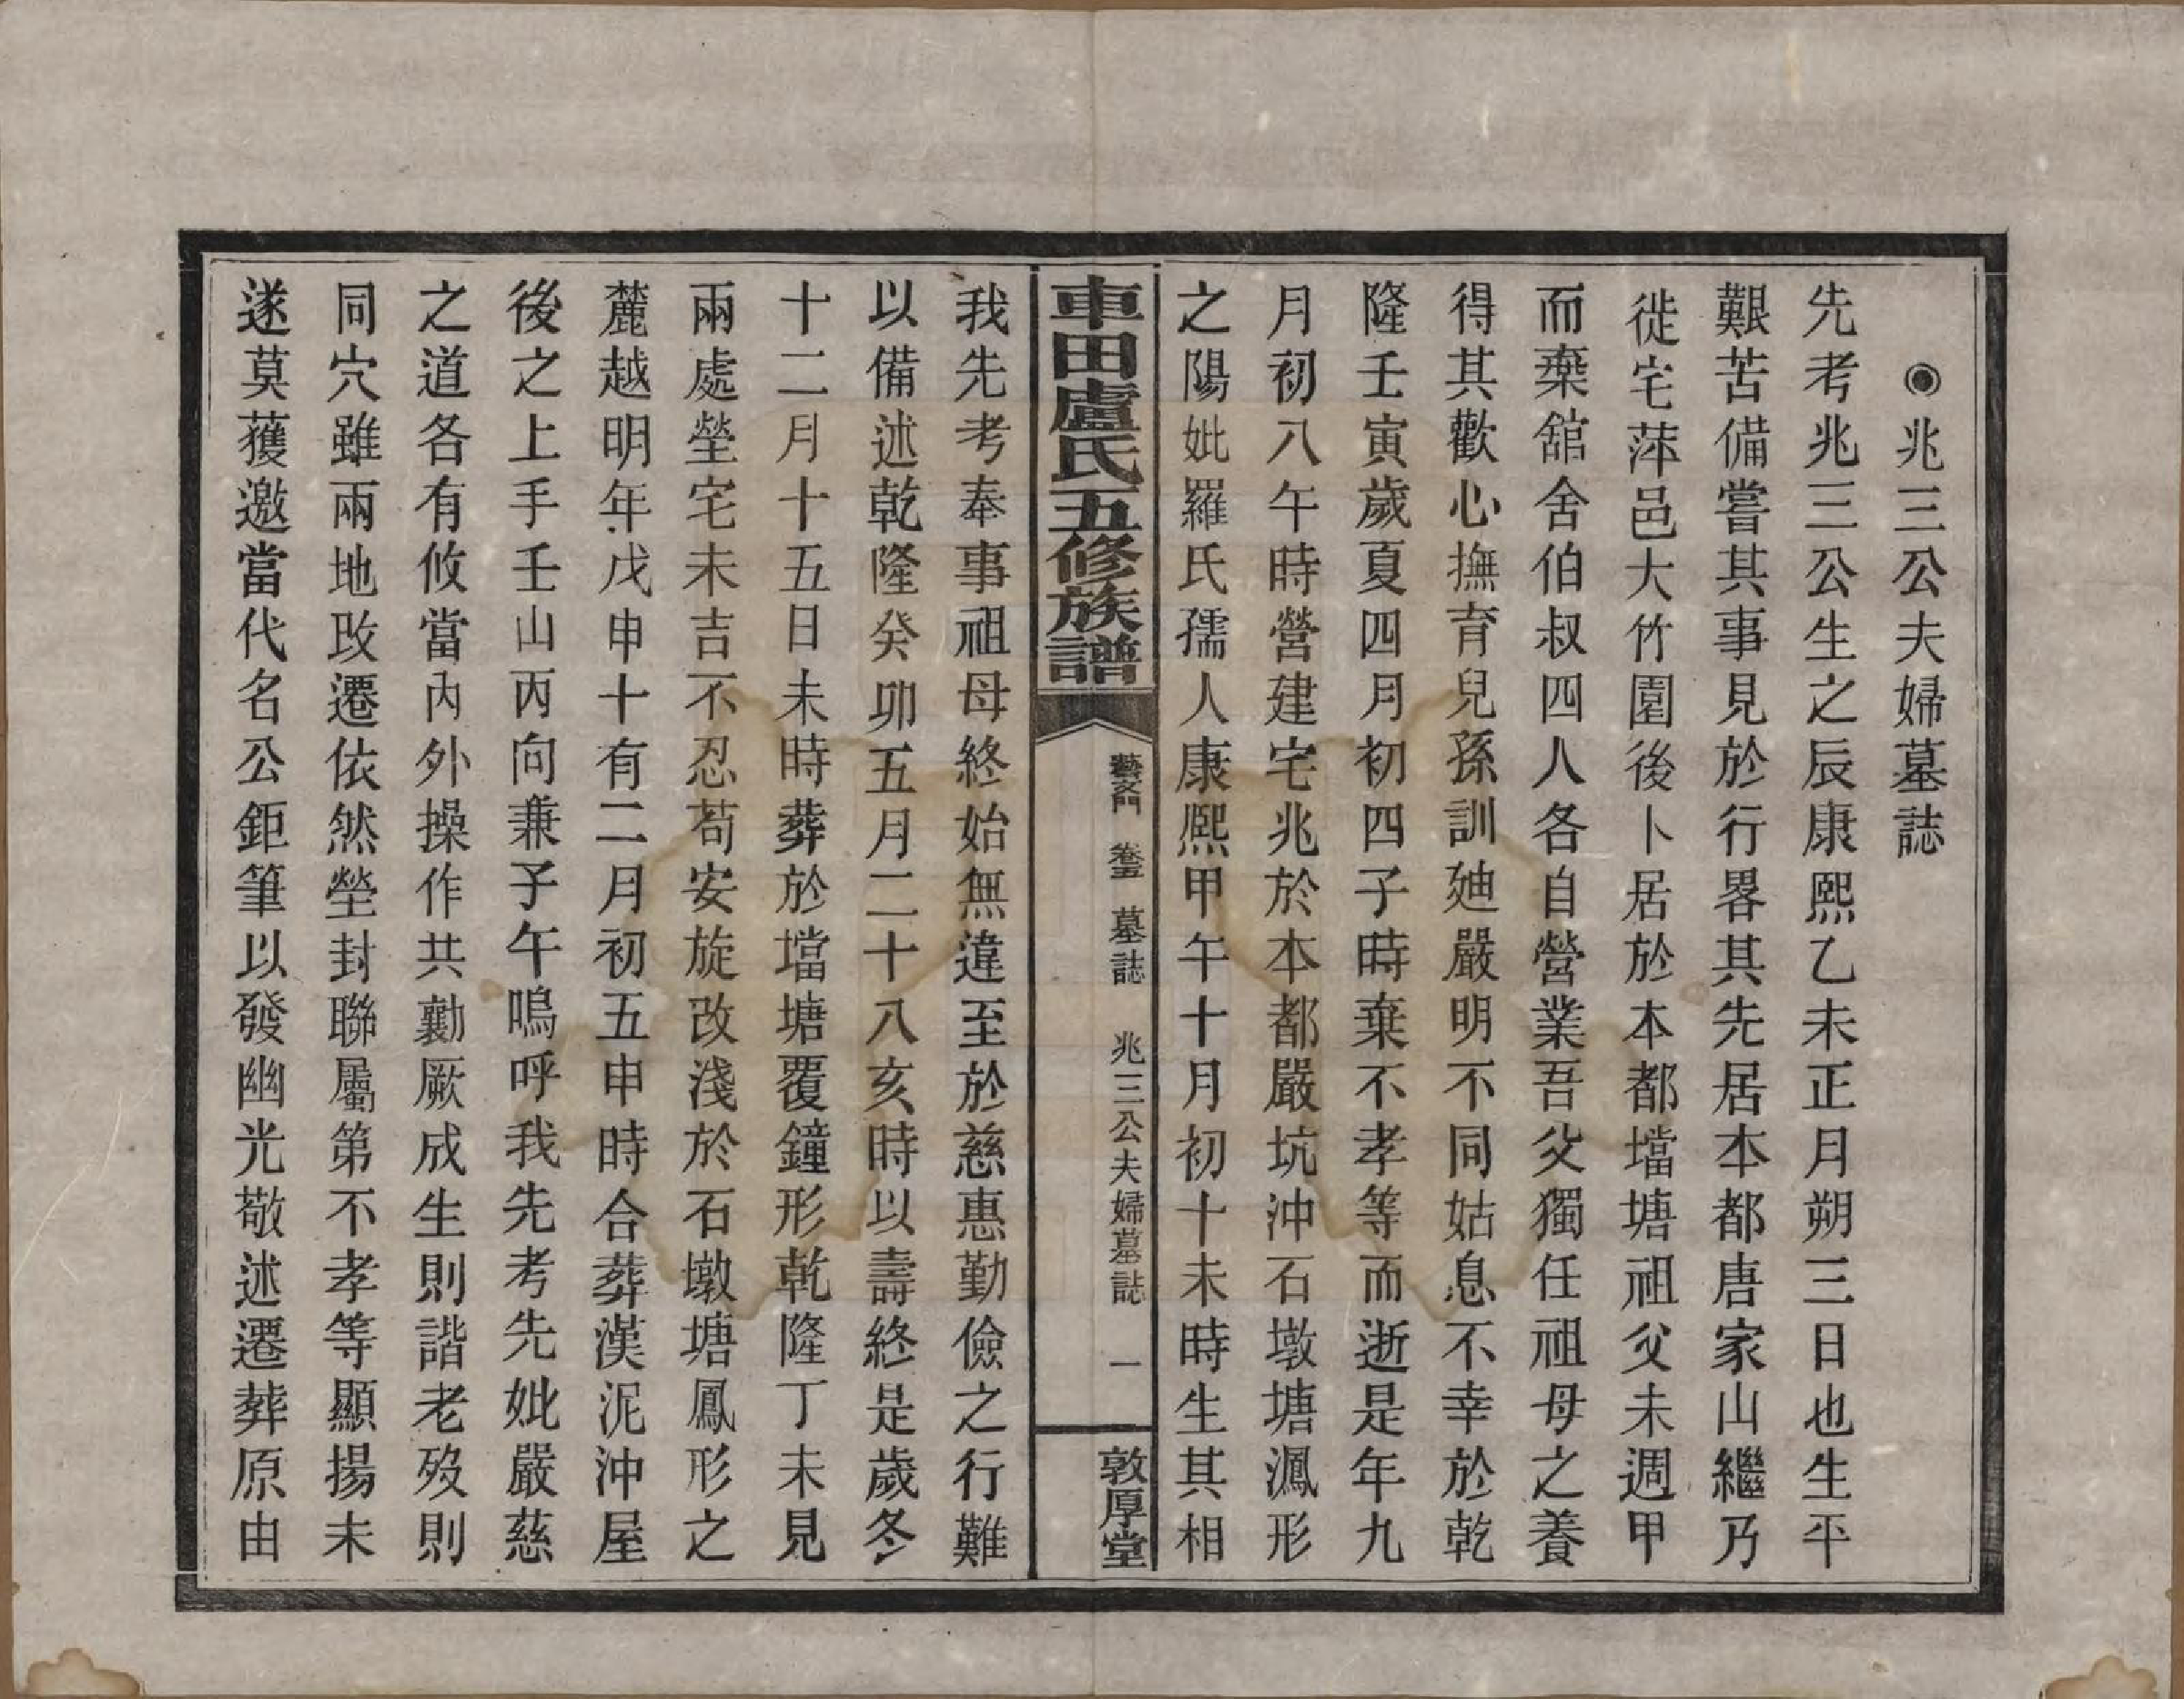 ◉兆三公夫婦墓誌
先考兆三公生之辰康熙乙未正月朔三日也生平
艱苦備嘗其事見於行畧其先居本都唐家山繼乃
徙宅萍邑大竹園後卜居於本都壋塘祖父未週甲
而棄舘舍伯叔四人各自營業吾父獨任祖母之養
得其歡心撫育兒孫訓廸嚴明不同姑息不幸於乾
隆壬寅歲夏四月初四子時棄不孝等而逝是年九
月初八午時營建宅兆於本都嚴坑沖石墩塘鳳形
之陽妣羅氏孺人康熙甲午十月初十未時生其相
車田盧氏五修族譜
藝文門 卷五 墓誌 兆三公夫婦墓誌 一 敦厚堂
我先考奉事祖母終始無違至於慈惠勤儉之行難
以備述乾隆癸卯五月二十八亥時以壽終是歲冬
十二月十五日未時葬於壋塘覆鐘形乾隆丁未見
兩處塋宅未吉不忍苟安旋改淺於石墩塘鳳形之
麓越明年戊申十有二月初五申時合葬漢泥沖屋
後之上手壬山丙向兼子午嗚呼我先考先妣嚴慈
之道各有攸當內外操作共勷厥成生則諧老歿則
同穴雖兩地改遷依然塋封聯屬第不孝等顯揚未
遂莫獲邀當代名公鉅筆以發幽光敬述遷葬原由